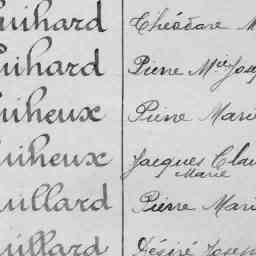 uihard Théodore M
uihard Pierre Mie Jose
uiheux Pierre Mari
uiheux Jacques Clau
Marie
uillard Pierre Mari
uillard Désiré Josep